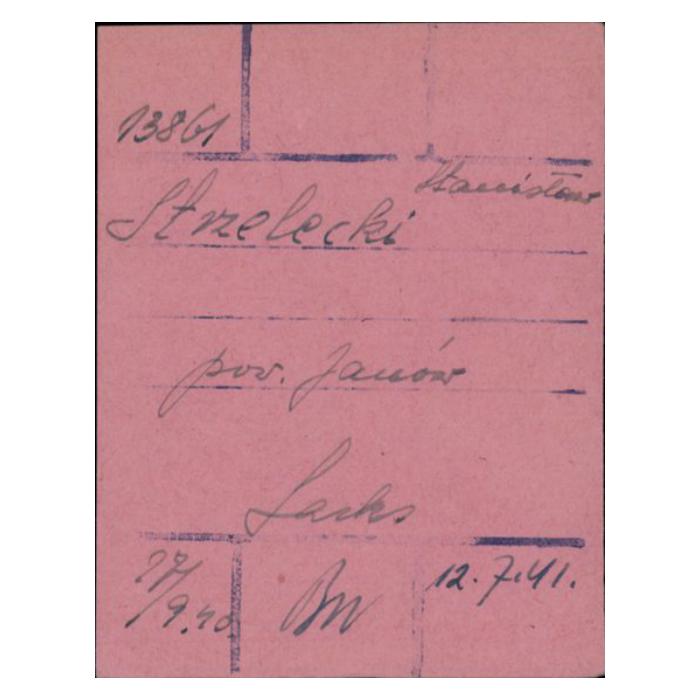 13861
Stanisław
Strzelecki
pow. Janów
Sachs
27/9.40.
BW
12.7.41.